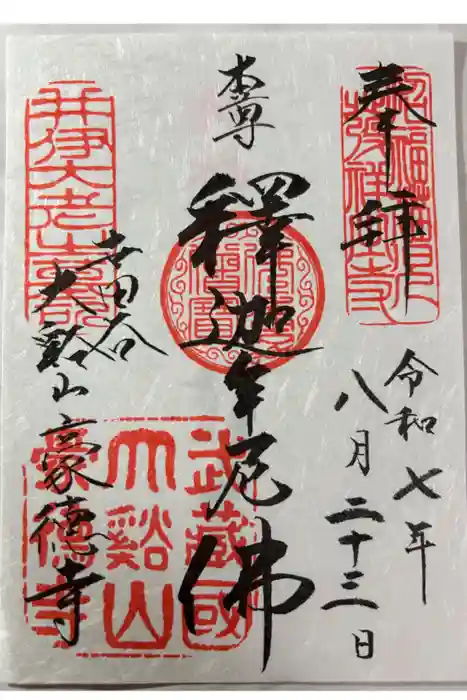 奉拝
令和七年
八月二十三日
本尊
釋迦牟尼佛
世田谷
大谿山豪徳寺
招福猫児発祥之寺
佛法僧寳
武蔵國
大谿山
豪徳寺
井伊大老墓所